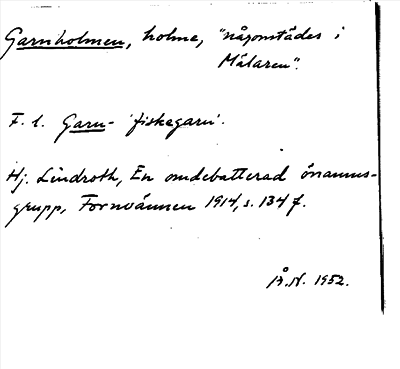 Garnholmen, holme, "någonstädes i
Mälaren".
F. l. Garn- 'fiskegarn'.
Hj. Lindroth, En omdebatterad önamns-
grupp, Fornvännen 1914, s. 134 f.
Å.N. 1952.